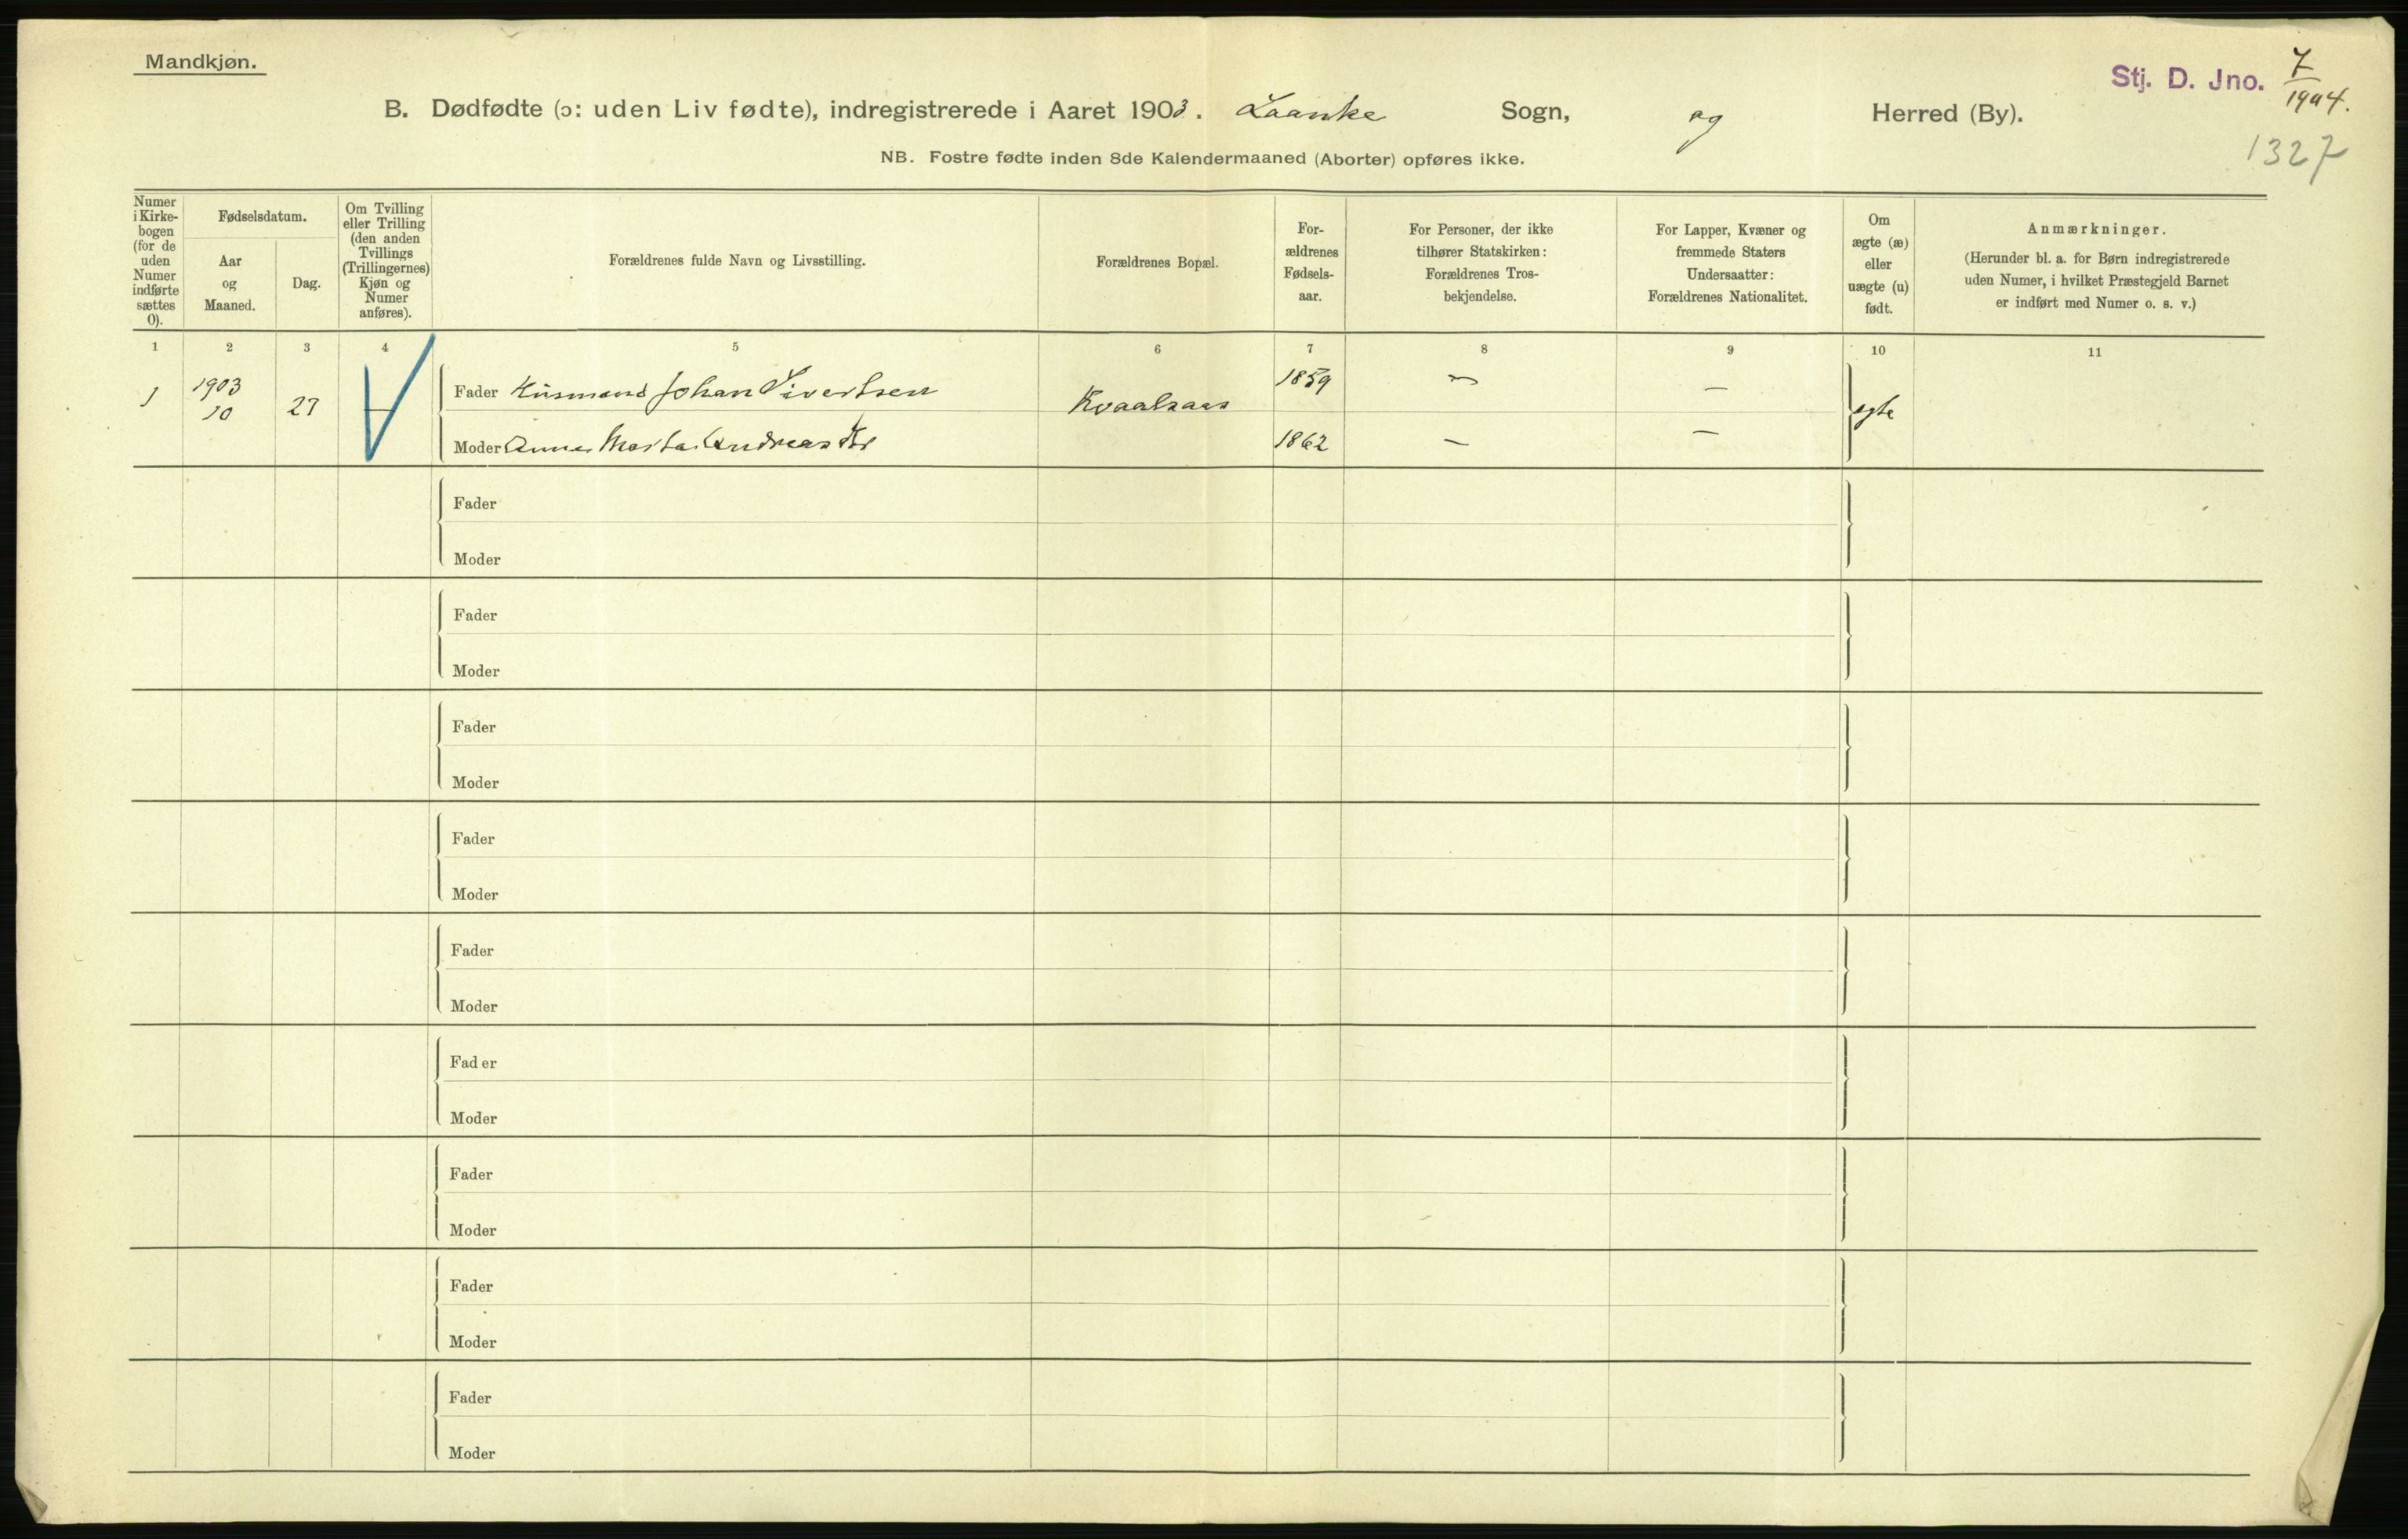 Mandkjøn.
Stj. D. Jno. 7/1904.
B. Dødfødte (ɔ: uden Liv fødte), indregistrerede i Aaret 1903. Laanke Sogn, og Herred (By).
1327
NB. Fostre fødte inden 8de Kalendermaaned (Aborter) opføres ikke.
Numer i Kirke-bogen (for de uden Numer indførte sættes 0).
Fødselsdatum.
Aar og Maaned.
Dag.
Om Tvilling eller Trilling (den anden Tvillings (Trillingernes) Kjøn og Numer anføres).
Forældrenes fulde Navn og Livsstilling.
Forældrenes Bopæl.
For-ældrenes Fødsels-aar.
For Personer, der ikke tilhører Statskirken: Forældrenes Tros-bekjendelse.
For Lapper, Kvæner og fremmede Staters Undersaatter: Forældrenes Nationalitet.
Om ægte (æ) eller uægte (u) født.
Anmærkninger. (Herunder bl. a. for Børn indregistrerede uden Numer, i hvilket Præstegjeld Barnet er indført med Numer o. s. v.)
1 2 3 4 5 6 7 8 9 10 11
1 1903 10 27 Fader Husmand Johan Sivertsen Kvaalsaas 1859 — — egte
Moder Anna Marta Andreasdtr 1862 — —
Fader
Moder
Fader
Moder
Fader
Moder
Fader
Moder
Fader
Moder
Fader
Moder
Fader
Moder
Fader
Moder
Fader
Moder